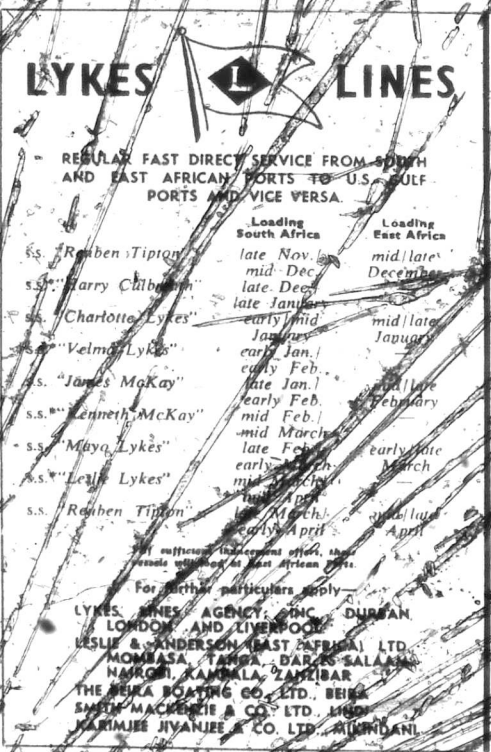 LYKES L LINES
REGULAR FAST DIRECT SERVICE FROM SOUTH
AND EAST AFRICAN PORTS TO U.S. GULF
PORTS AND VICE VERSA.
Loading Loading
South Africa East Africa
s.s. "Reuben Tipton" late Nov./ mid/late
mid Dec. December
s.s. "Harry Culbreath" late Dec./
late January
s.s. "Charlotte Lykes" early/mid mid/late
January January
s.s. "Velma Lykes" early Jan./ —
early Feb.
s.s. "James McKay" late Jan./ mid/late
early Feb. February
s.s. "Kenneth McKay" mid Feb./ —
mid March
s.s. "Mayo Lykes" late Feb./ early/late
early March March
s.s. "Leslie Lykes" mid March/ —
mid April
s.s. "Reuben Tipton" late March/ mid/late
early April April
*If sufficient inducement offers, these
vessels will load at East African Ports.
For further particulars apply—
LYKES LINES AGENCY, INC., DURBAN,
LONDON AND LIVERPOOL.
LESLIE & ANDERSON (EAST AFRICA) LTD.,
MOMBASA, TANGA, DAR ES SALAAM,
NAIROBI, KAMPALA, ZANZIBAR
THE BEIRA BOATING CO., LTD., BEIRA
SMITH MACKENZIE & CO., LTD., LINDI
KARIMJEE JIVANJEE & CO. LTD., MIKINDANI